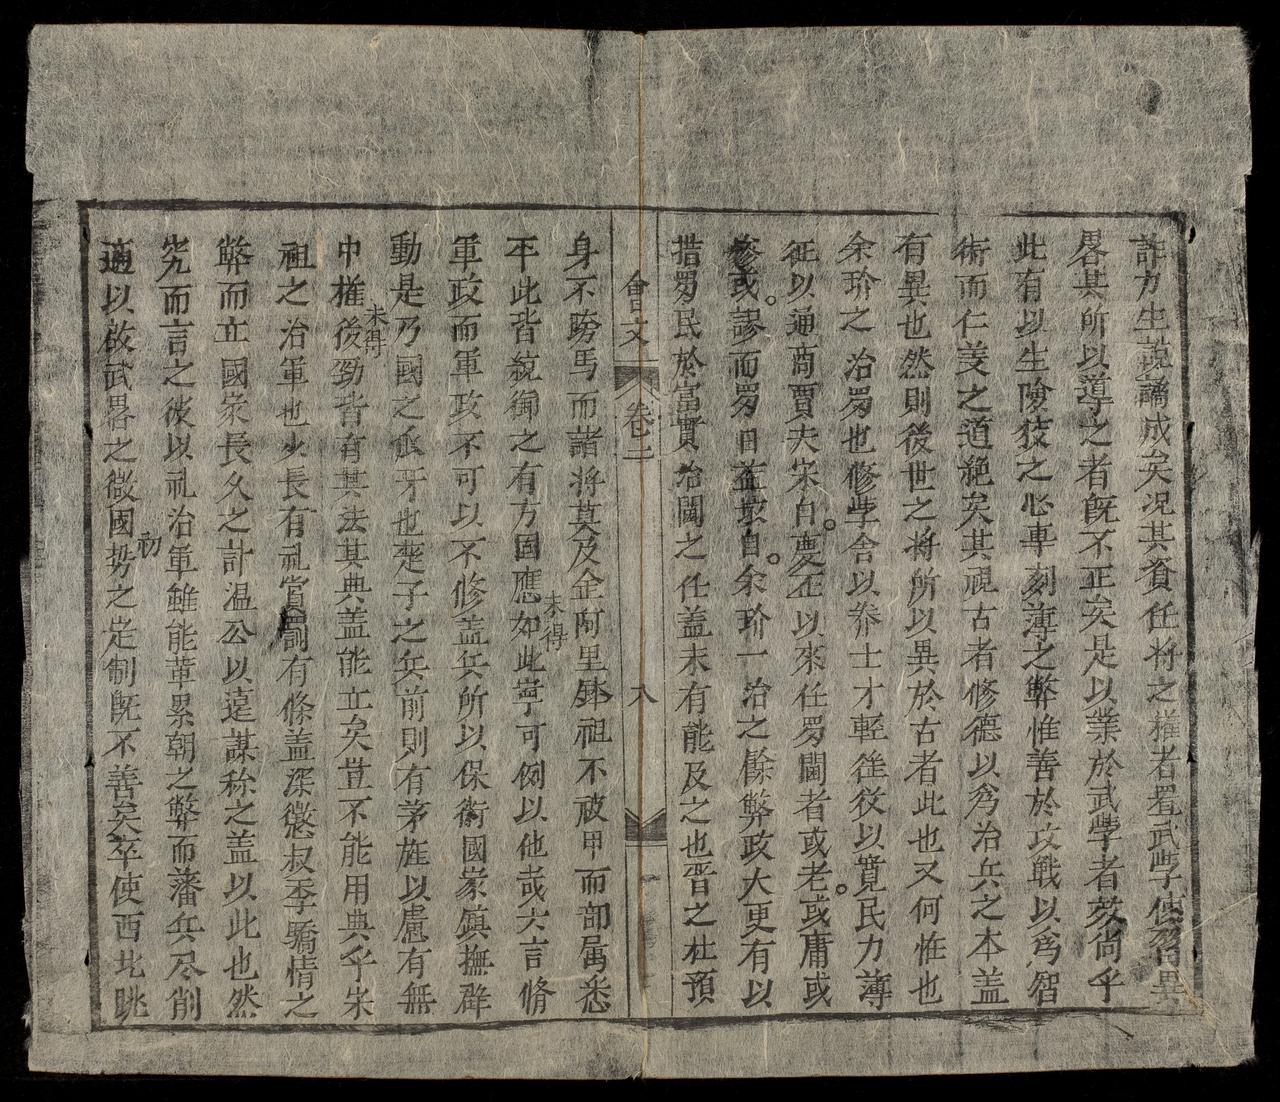 詐力生說譎成矣况其資任將之權者置武學使習異
畧其所以導之者旣不正矣是以業於武學者效尚乎
此有以生險狡之心專刻薄之弊惟善於攻戰以爲智
術而仁義之道絶矣其視古者修德以爲治兵之本盖
有異也然則後世之將所以異於古者此也又何惟也
余玠之治蜀也修學舍以养士才輕徭役以寬民力薄
征以通商賈夫宋自慶䒶以來任蜀閫者或老或庸或
慘或謬而蜀日益壞自余玠一治之餘弊政大更有以
措蜀民於富實治閫之任盖未有能及之也晋之杜預
會文 卷二 八
身不跨馬而諸將莫及金阿里鉢祖不被甲而部属悉
平此皆統御之有方固應如此寧可例以他哉大言脩
未得
軍政而軍政不可以不修盖兵所以保衛國家鎮撫群
動是乃國之爪牙也楚子之兵前則有茅旌以慮有無
中權後勁皆有其法其典盖能立矣豈不能用典乎朱
未得
祖之治軍也少長有礼賞罰有條盖深懲叔季驕情之
弊而立國家長久之計温公以遠謀称之盖以此也然
究而言之彼以礼治軍雖能革累朝之弊而藩兵尽削
適以啟武畧之微國势之定制旣不善矣卒使西北眺
初